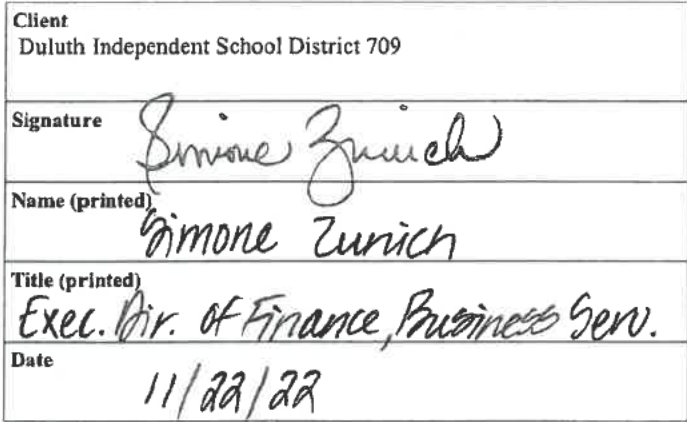 Client
Duluth Independent School District 709
Signature
Simone Zunich
Name (printed)
Simone Zunich
Title (printed)
Exec. Dir. of Finance, Business Serv.
Date
11/22/22